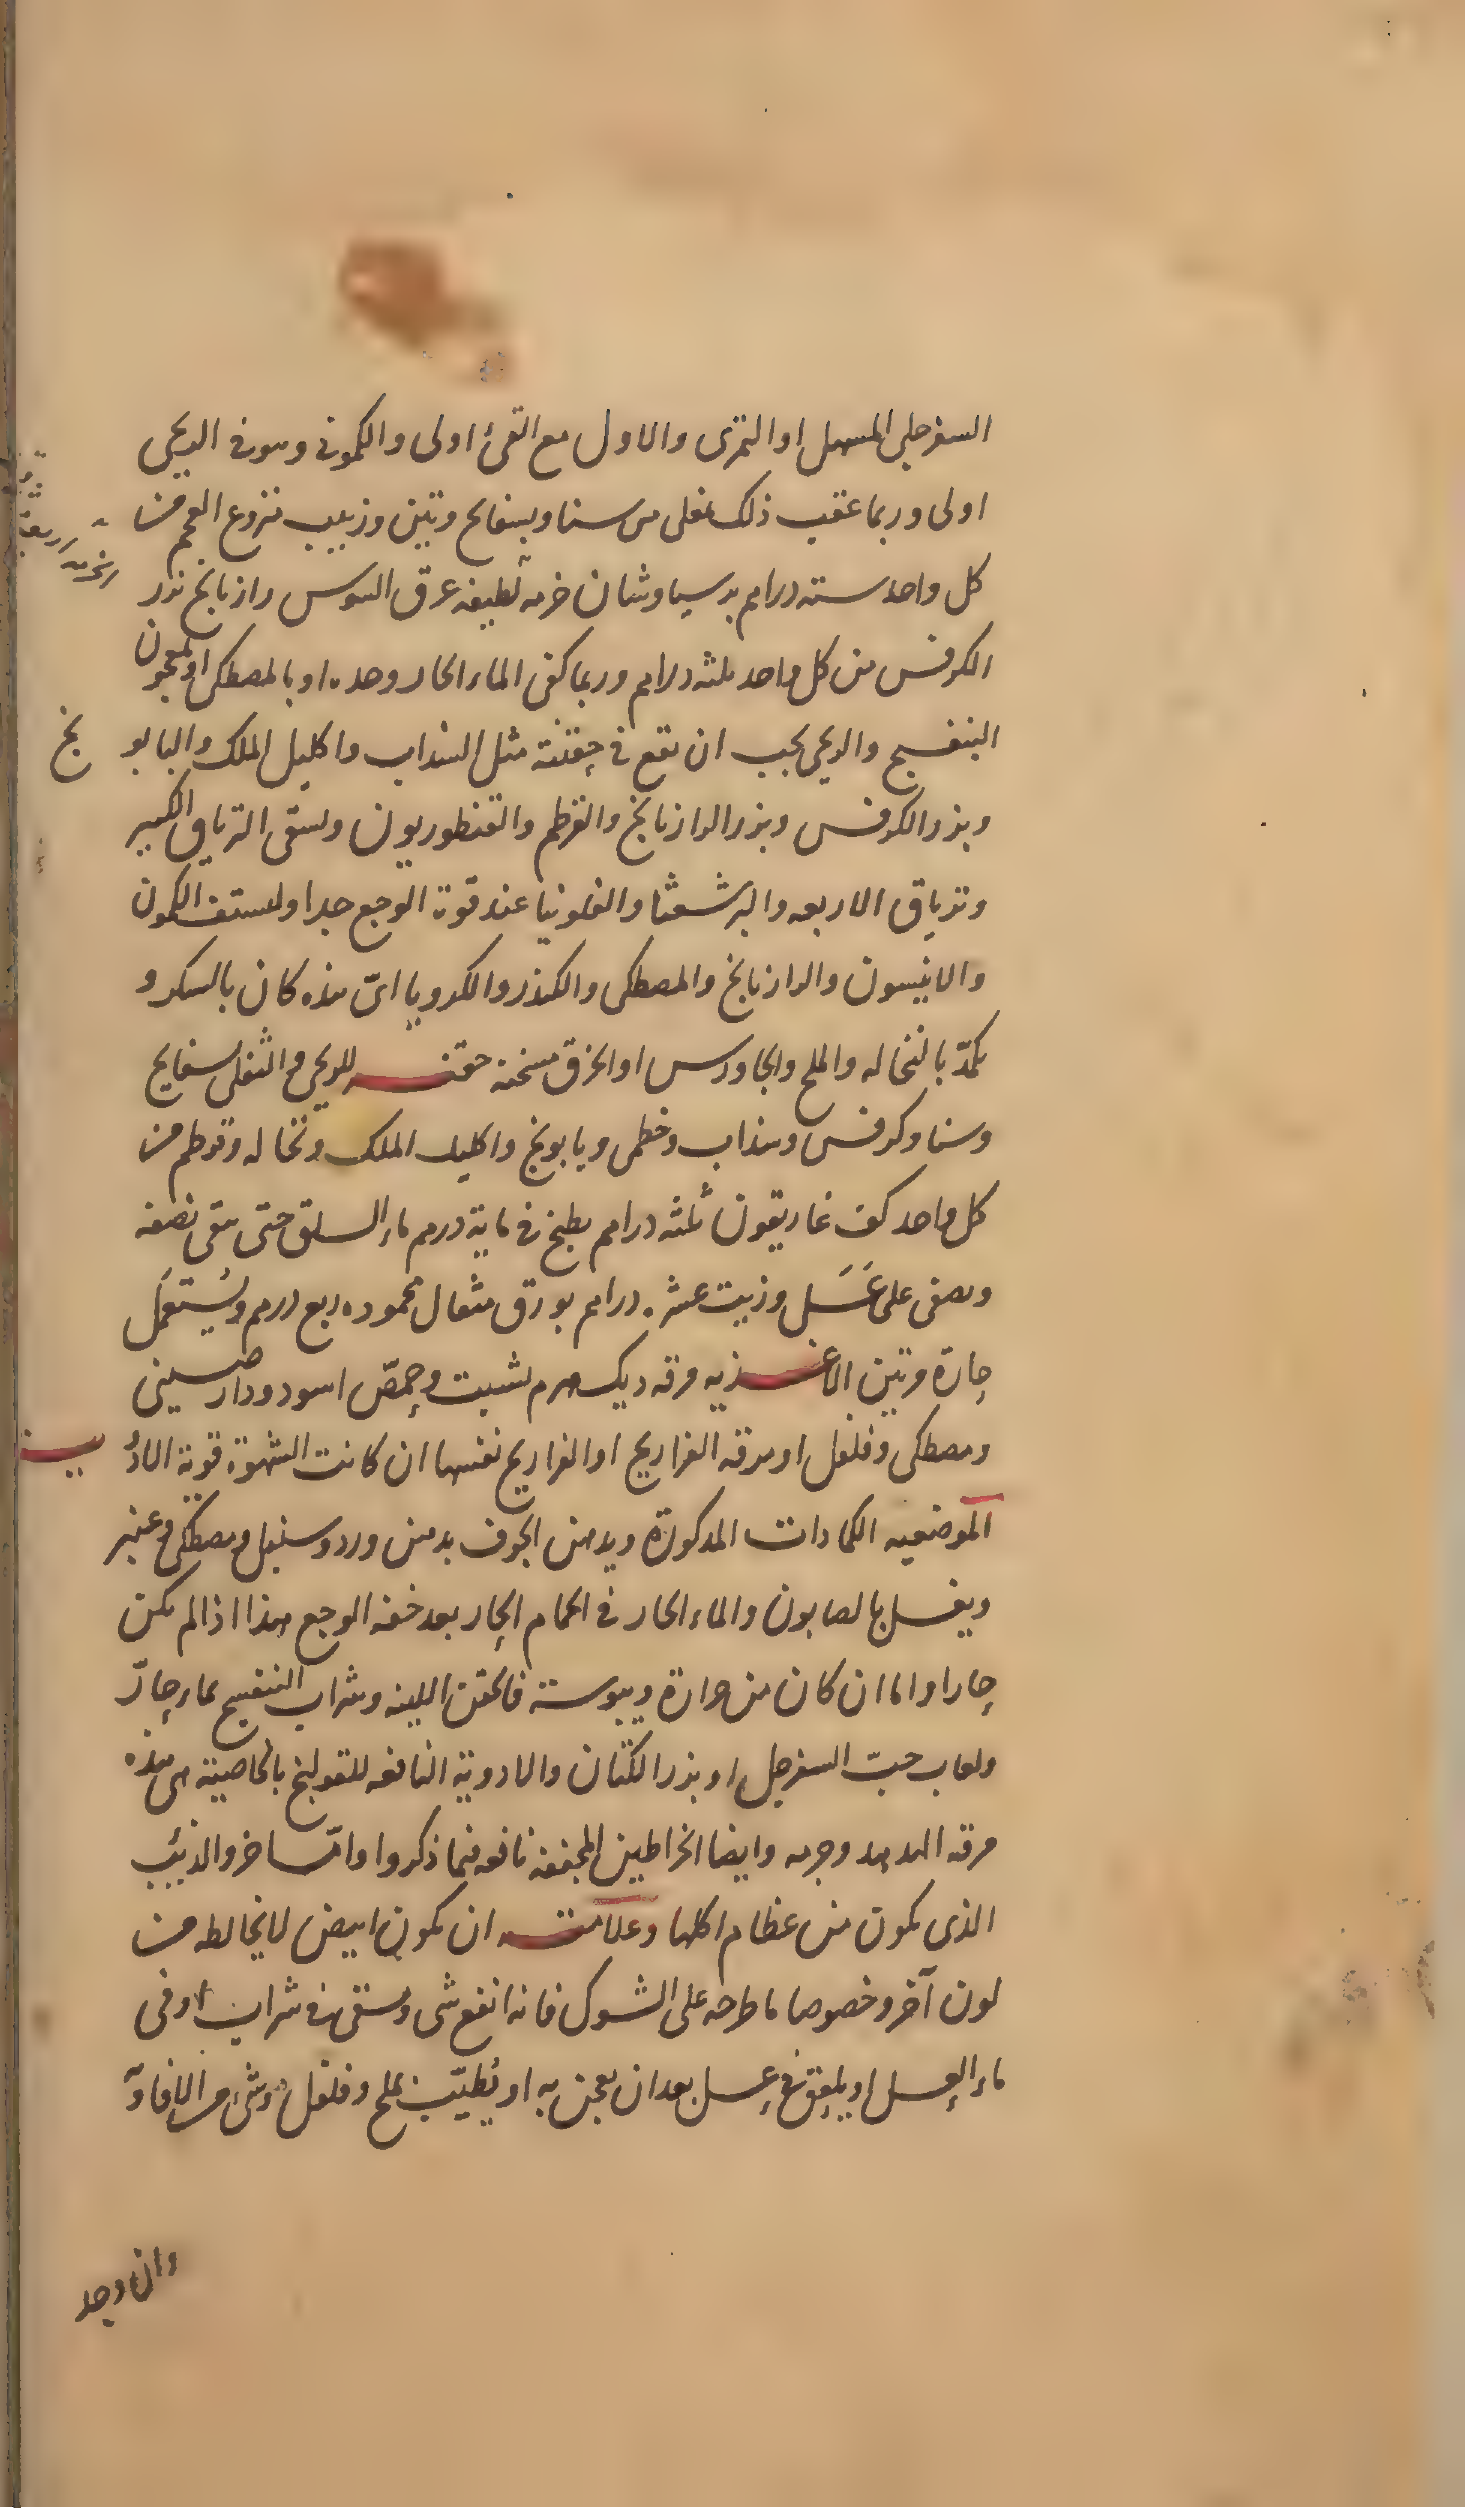 السفرجلى المسهل او التمرى والاول مع القئ اولى والكمونى وهو فى الريحى
اولى وربما عقب ذلك بمغلى من سنا وبسفايج وتين وزبيب منزوع العجم من
كل واحد ستة دراهم برسياوشان خرمه لطيفه عرق السوس رازيانج بزر
الكرفس من كل واحد ثلثه دراهم وربما كفى الماء الحار وحده او بالمصطكى او بمعجون
البنفسج والريحى يجب ان يقع فى حقنته مثل السذاب واكليل الملك والبابونج
وبزر الكرفس وبزر الرازيانج والقرطم والقنطوريون ويسقى الترياق الكبير
وترياق الاربعه والبرشعثا والفلونيا عند قوة الوجع جدا وليستف الكمون
والانيسون والرازيانج والمصطكى والكندر والكرويا اىّ هذه كان بالسكر و
يكمدّ بالنخاله والملح والجاورس او الخرق مسخنة حقنه للريحى والثفلى بسفايج
وسنا وكرفس وسذاب وخطمى وبابونج واكليل الملك ونخاله وقرطم من
كل واحد كف غاريقون ثلثه دراهم يطبخ فى ماية درهم ماء السلق حتى يبقى نصفه
ويصفى على عَسَل وزيت عشره دراهم بورق مثقال محموده ربع درهم ويُستعمَل
حارة مرتين الاغذيه مرقه ديك هرم بشبت وحمصّ اسود ودار صينى
ومصطكى وفلفل او مرقه الفراريج او الفراريج نفسها ان كانت الشهوة قوية الادويه
الموضعيه الكمادات المذكورة ويدهن الجوف بدهن ورد وسنبل ومصطكى وعنبر
ويغسل بالصابون والماء الحار فى الحمام الحار بعد خفه الوجع هذا اذا لم يكن
حارا واما ان كان من حرارة ويبوسة فالحقن اللينه وشراب البنفسج بماء حارّ
ولعاب حبّ السفرجل او بزر الكتان والادوية النافعه للقولنج بالخاصية هى هذه
مرقه الهدهد وجرمه وايضا الخراطين المجففه نافعه فيما ذكروا وامّا خرو الذئب
الذى يكون من عظام اكلها وعلامته ان يكون ابيض لا يخالطه من
لون آخر وخصوصا ما طرحه على الشوك فانه انفع شى ويسقى فى شراب او فى
ماء العسل او يلعق فى عسل بعد ان يعجن به او يُطيّب بملح وفلفل وشئ من الافاوّ
وان وجد